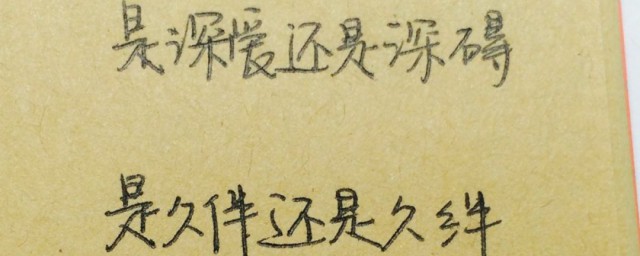 是深爱还是深碍
是久伴还是久绊